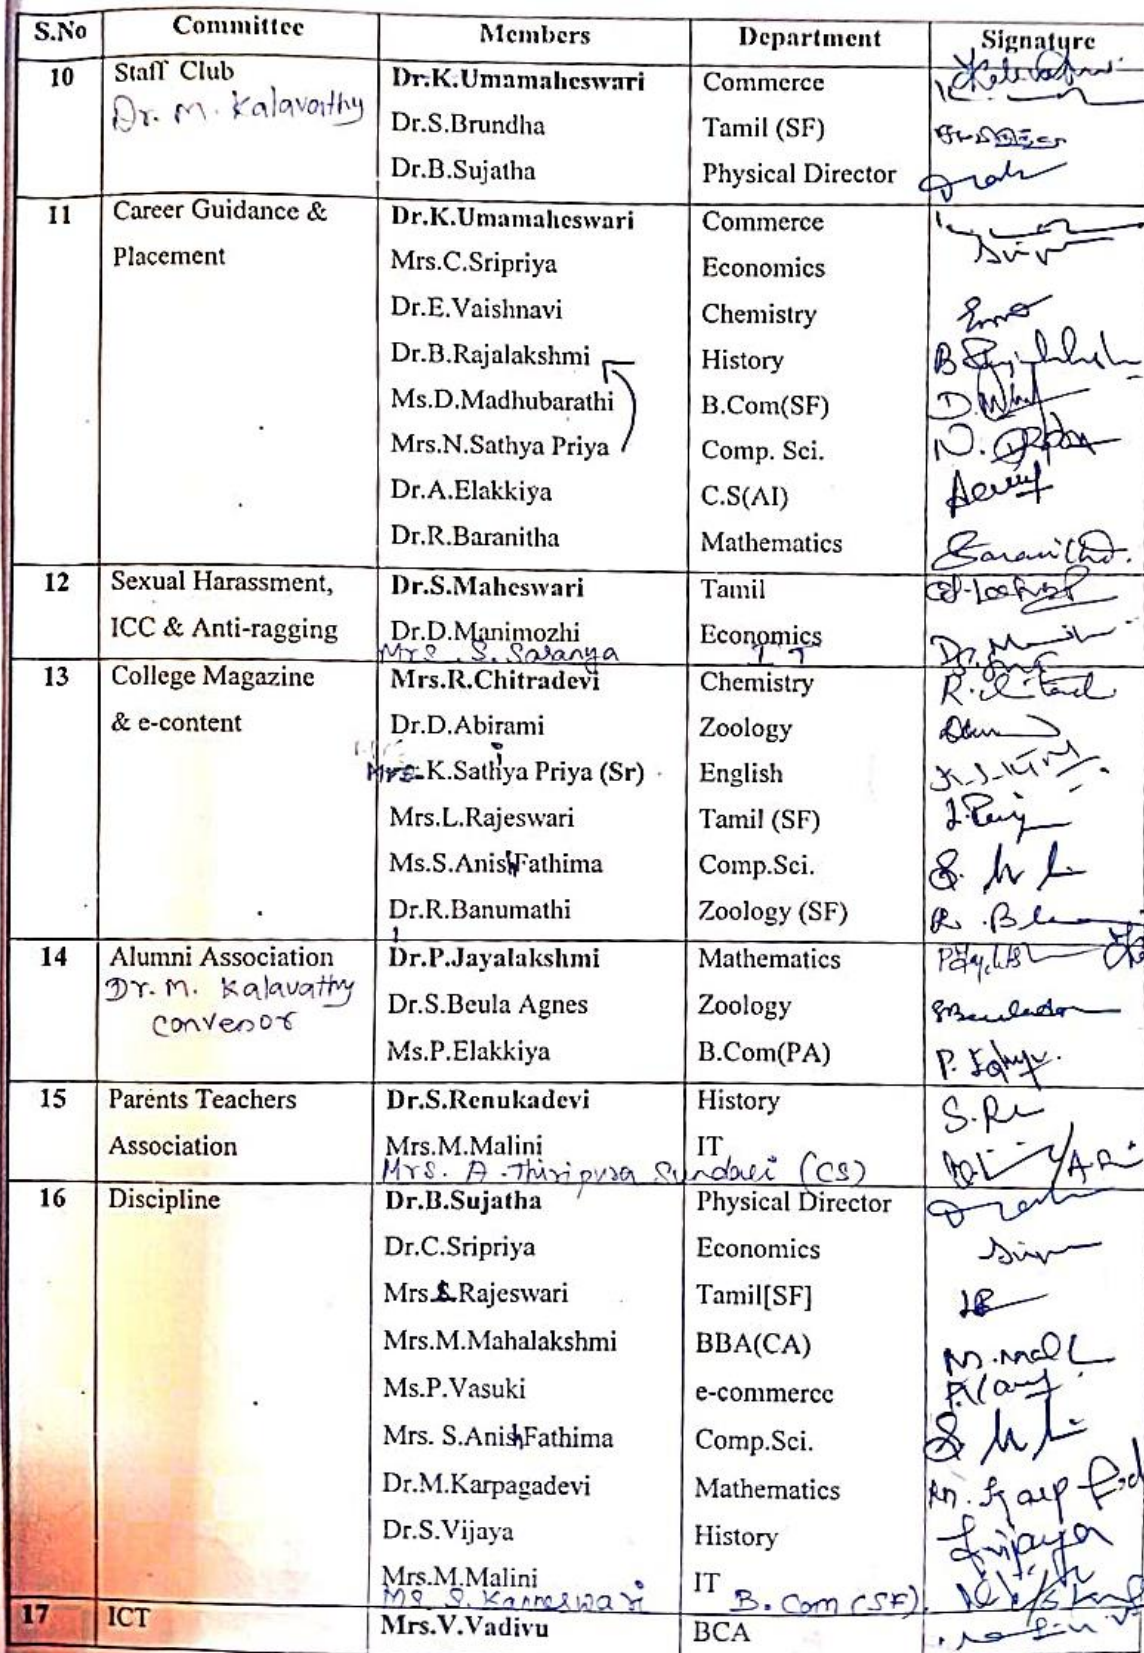 S.No Committee Members Department Signature
10 Staff Club Dr.K.Umamaheswari Commerce
Dr. M. Kalavathy
Dr.S.Brundha Tamil (SF)
Dr.B.Sujatha Physical Director
11 Career Guidance & Dr.K.Umamaheswari Commerce
Placement Mrs.C.Sripriya Economics
Dr.E.Vaishnavi Chemistry
Dr.B.Rajalakshmi History
Ms.D.Madhubarathi B.Com(SF)
Mrs.N.Sathya Priya Comp. Sci.
Dr.A.Elakkiya C.S(AI)
Dr.R.Baranitha Mathematics
12 Sexual Harassment, Dr.S.Maheswari Tamil
ICC & Anti-ragging Dr.D.Manimozhi Economics
Mrs. S. Saranya IT
13 College Magazine Mrs.R.Chitradevi Chemistry
& e-content Dr.D.Abirami Zoology
Mrs.K.Sathiya Priya (Sr) English
Mrs.L.Rajeswari Tamil (SF)
Ms.S.Anish Fathima Comp.Sci.
Dr.R.Banumathi Zoology (SF)
14 Alumni Association Dr.P.Jayalakshmi Mathematics
Dr. M. Kalavathy Dr.S.Beula Agnes Zoology
convenor
Ms.P.Elakkiya B.Com(PA) P.
15 Parents Teachers Dr.S.Renukadevi History
Association Mrs.M.Malini IT
Mrs. A. Thiripura Sundari (CS)
16 Discipline Dr.B.Sujatha Physical Director
Dr.C.Sripriya Economics
Mrs.L.Rajeswari Tamil[SF]
Mrs.M.Mahalakshmi BBA(CA)
Ms.P.Vasuki e-commerce
Mrs. S.Anish Fathima Comp.Sci.
Dr.M.Karpagadevi Mathematics
Dr.S.Vijaya History
Mrs.M.Malini IT
Ms. S. Kanneswari B.Com (SF)
17 ICT Mrs.V.Vadivu BCA